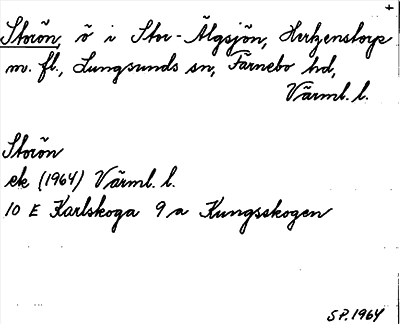 Storön, ö i Stor-Älgsjön, Hertzenstorp
m. fl., Lungsunds sn, Färnebo hd,
Värml. l.
Storön
ek (1964) Värml. l.
10 E Karlskoga 9 a Kungsskogen
S.P. 1964